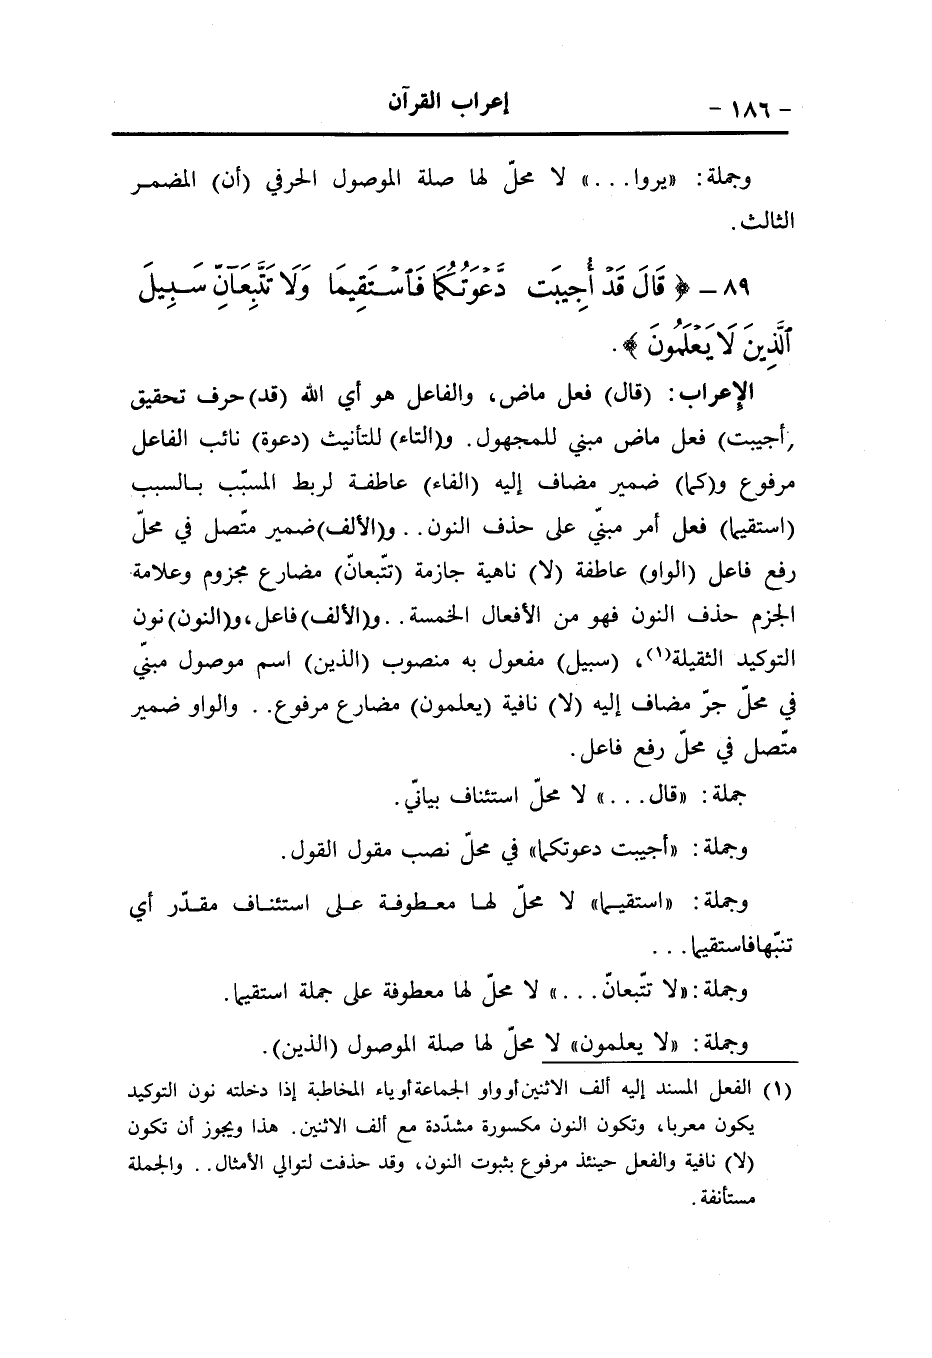 - ١٨٦ - إعراب القرآن
وجملة: «يروا...» لا محلّ لها صلة الموصول الحرفي (أن) المضمر
الثالث.
٨٩ ـ ﴿ قَالَ قَدْ أُجِيبَت دَّعْوَتُكُمَا فَٱسْتَقِيمَا وَلَا تَتَّبِعَآنِّ سَبِيلَ
ٱلَّذِينَ لَا يَعْلَمُونَ ﴾.
الإعراب: (قال) فعل ماض، والفاعل هو أي الله (قد) حرف تحقيق
(أجيبت) فعل ماض مبني للمجهول. و(التاء) للتأنيث (دعوة) نائب الفاعل
مرفوع و(كما) ضمير مضاف إليه (الفاء) عاطفة لربط المسبّب بالسبب
(استقيما) فعل أمر مبنيّ على حذف النون.. و(الألف) ضمير متّصل في محلّ
رفع فاعل (الواو) عاطفة (لا) ناهية جازمة (تتّبعانّ) مضارع مجزوم وعلامة
الجزم حذف النون فهو من الأفعال الخمسة.. و(الألف) فاعل، و(النون) نون
التوكيد الثقيلة(١)، (سبيل) مفعول به منصوب (الذين) اسم موصول مبنيّ
في محلّ جرّ مضاف إليه (لا) نافية (يعلمون) مضارع مرفوع.. والواو ضمير
متّصل في محلّ رفع فاعل.
جملة: «قال...» لا محلّ استئناف بيانيّ.
وجملة: «أجيبت دعوتكما» في محلّ نصب مقول القول.
وجملة: «استقيما» لا محلّ لها معطوفة على استئناف مقدّر أي
تنبّها فاستقيما...
وجملة: «لا تتّبعانّ...» لا محلّ لها معطوفة على جملة استقيما.
وجملة: «لا يعلمون» لا محلّ لها صلة الموصول (الذين).
(١) الفعل المسند إليه ألف الاثنين أو واو الجماعة أو ياء المخاطبة إذا دخلته نون التوكيد
يكون معربا، وتكون النون مكسورة مشدّدة مع ألف الاثنين. هذا ويجوز أن تكون
(لا) نافية والفعل حينئذ مرفوع بثبوت النون، وقد حذفت لتوالي الأمثال.. والجملة
مستأنفة.